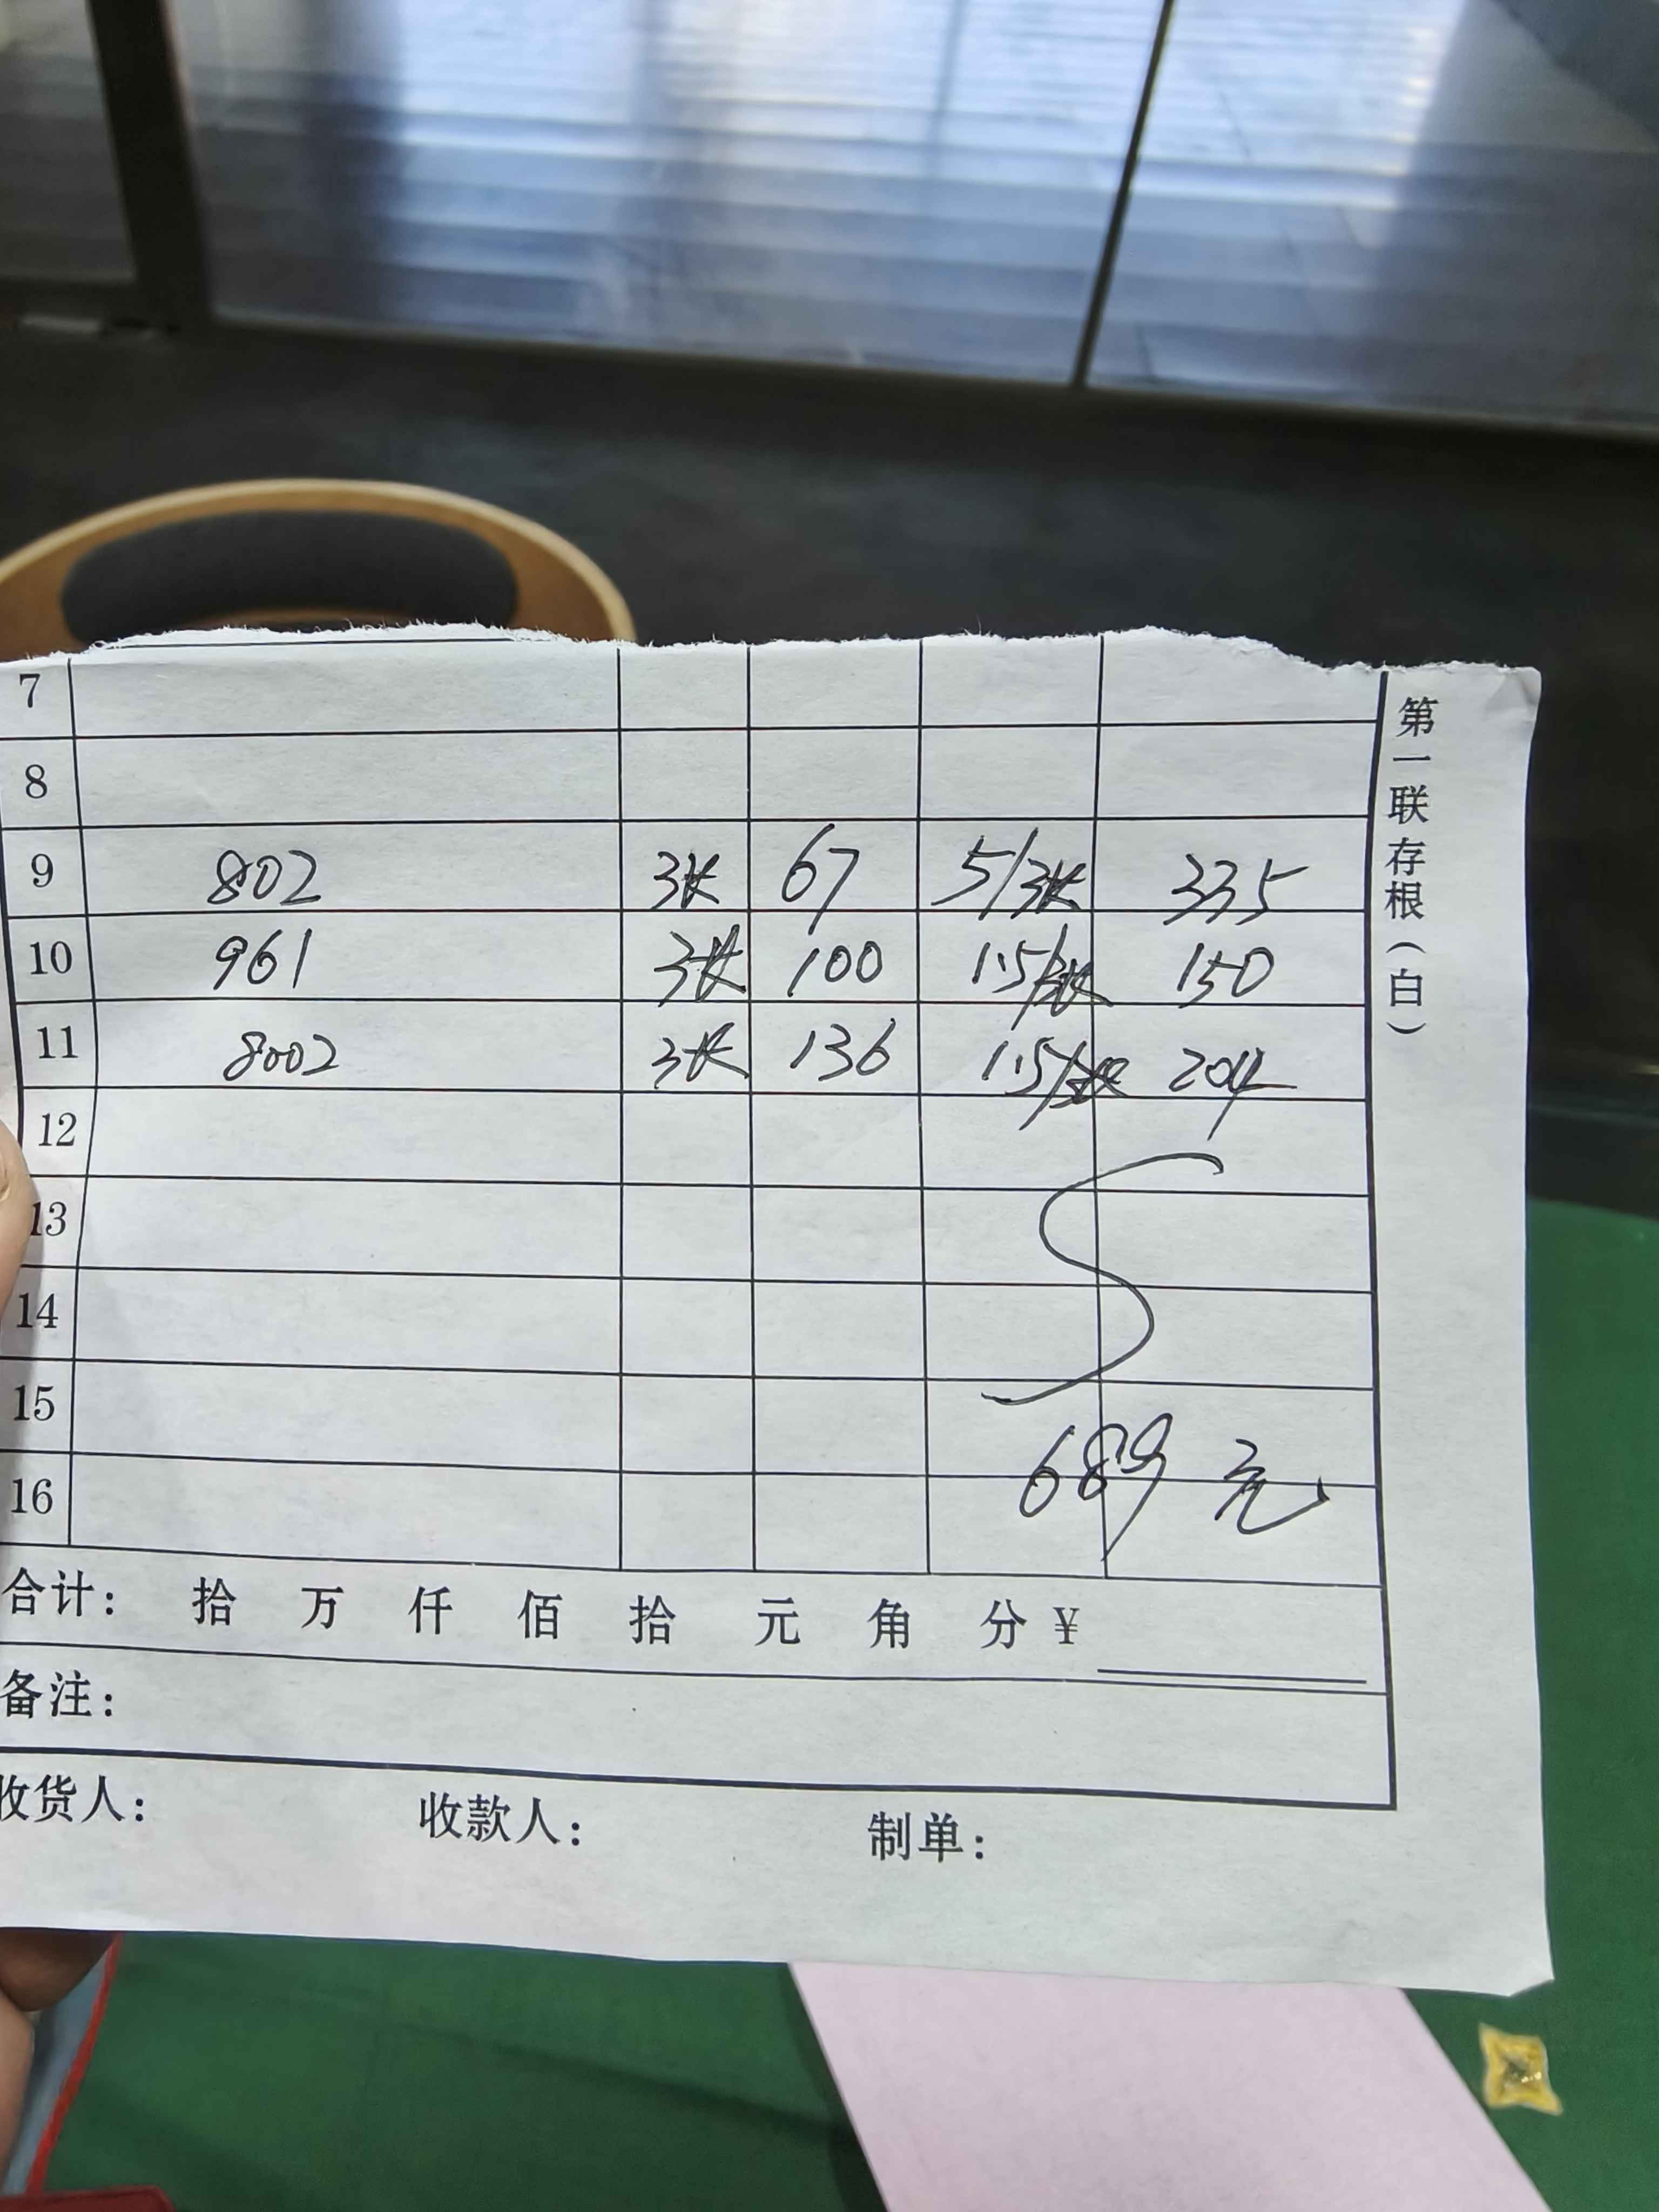 7
8
9 802 张 67 5/张 335
10 961 张 100 1.5/张 150
11 8002 张 136 1.5/张 204
12
13
14
15
16
689元
合计: 拾 万 仟 佰 拾 元 角 分 ¥
备注:
收货人: 收款人: 制单:
第一联存根(白)